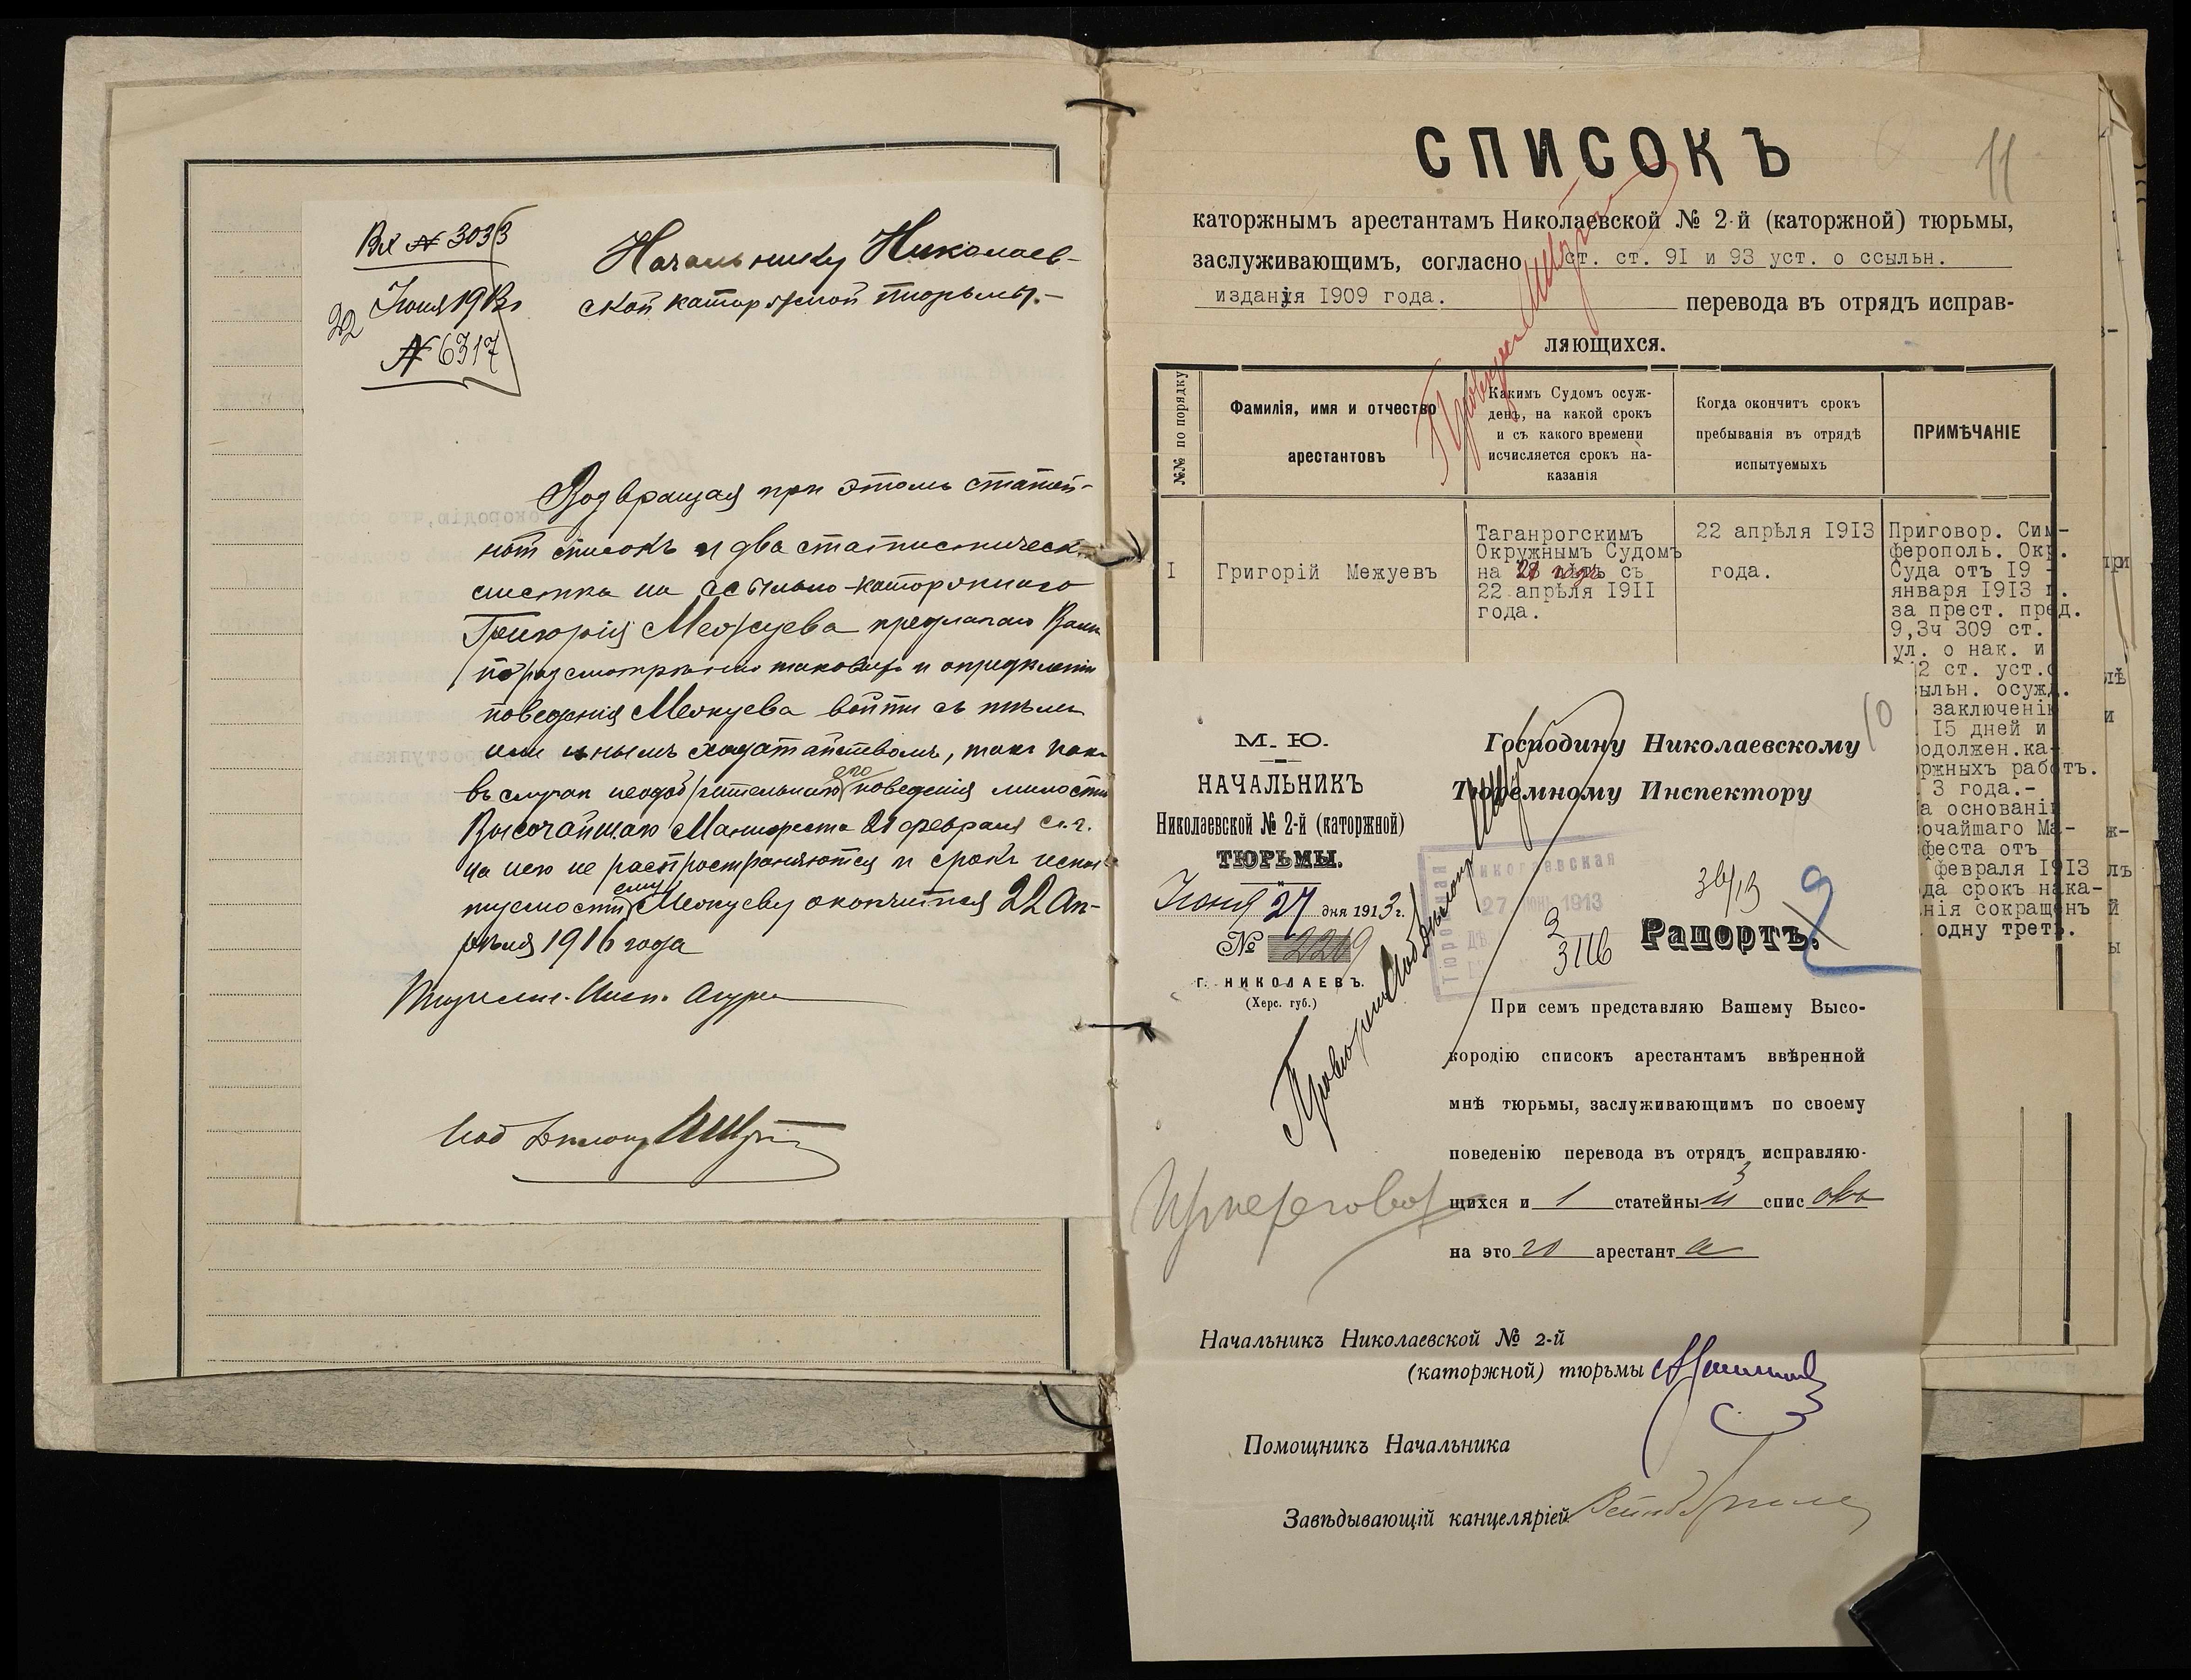 Вх № 3033
22 Іюня 1913 г.
№ 6317
Начальнику Николаев-
ской каторжной тюрьмы.-
Возвращая при этомъ статей-
ный списокъ и два статистическ.
листка на ссыльно-каторжнаго
Григорія Межуева предлагаю Вамъ
по разсмотрѣнію таковыхъ и опредѣленіи
поведенія Межуева войти съ тѣмъ
или инымъ ходатайствомъ, такъ какъ
въ случаѣ неодобрительнаго его поведенія милости
Высочайшаго Манифеста 21 февраля с.г.
на него не распространяются и срокъ испы-
туемости ему Межуеву окончится 22 Ап-
рѣля 1916 года
Тюремн. Инсп.
СПИСОКЪ
11
каторжнымъ арестантамъ Николаевской № 2-й (каторжной) тюрьмы,
заслуживающимъ, согласно ст. ст. 91 и 93 уст. о ссыльн.
изданія 1909 года. перевода въ отрядъ исправ-
ляющихся.
№№ по порядку
Фамилія, имя и отчество
арестантовъ
Какимъ Судомъ осуж-
денъ, на какой срокъ
и съ какого времени
исчисляется срокъ на-
казанія
Когда окончитъ срокъ
пребыванія въ отрядѣ
испытуемыхъ
ПРИМѢЧАНІЕ
I
Григорій Межуевъ
Таганрогскимъ
Окружнымъ Судомъ
на съ
22 апрѣля 1911
года.
22 апрѣля 1913
года.
Приговор. Сим-
ферополь. Окр.
Суда отъ 19 -
января 1913 г.
за прест. пред.
9,3ч 309 ст.
ул. о нак. и
2 ст. уст.о
ыльн. осужд.
заключенію
15 дней и
одолжен.ка-
ржныхъ работъ.
3 года.-
а основаніи
очайшаго Ма-
феста отъ
февраля 1913
да срокъ нака-
нія сокращенъ
одну треть.
10
М. Ю.
НАЧАЛЬНИКЪ
Николаевской № 2-й (каторжной)
ТЮРЬМЫ.
Іюня 27 дня 1913 г.
№ 2219
Г. НИКОЛАЕВЪ.
(Херс. губ.)
Господину Николаевскому
Тюремному Инспектору
Николаевская
27 ІЮН 1913
Тюремная
3116
9
Рапортъ.
При семъ представляю Вашему Высо-
кородію списокъ арестантамъ ввѣренной
мнѣ тюрьмы, заслуживающимъ по своему
поведенію перевода въ отрядъ исправляю-
щихся и 1 статейный списокъ
на этого арестанта
Начальникъ Николаевской № 2-й
(каторжной) тюрьмы
Помощникъ Начальника
Завѣдывающій канцеляріей